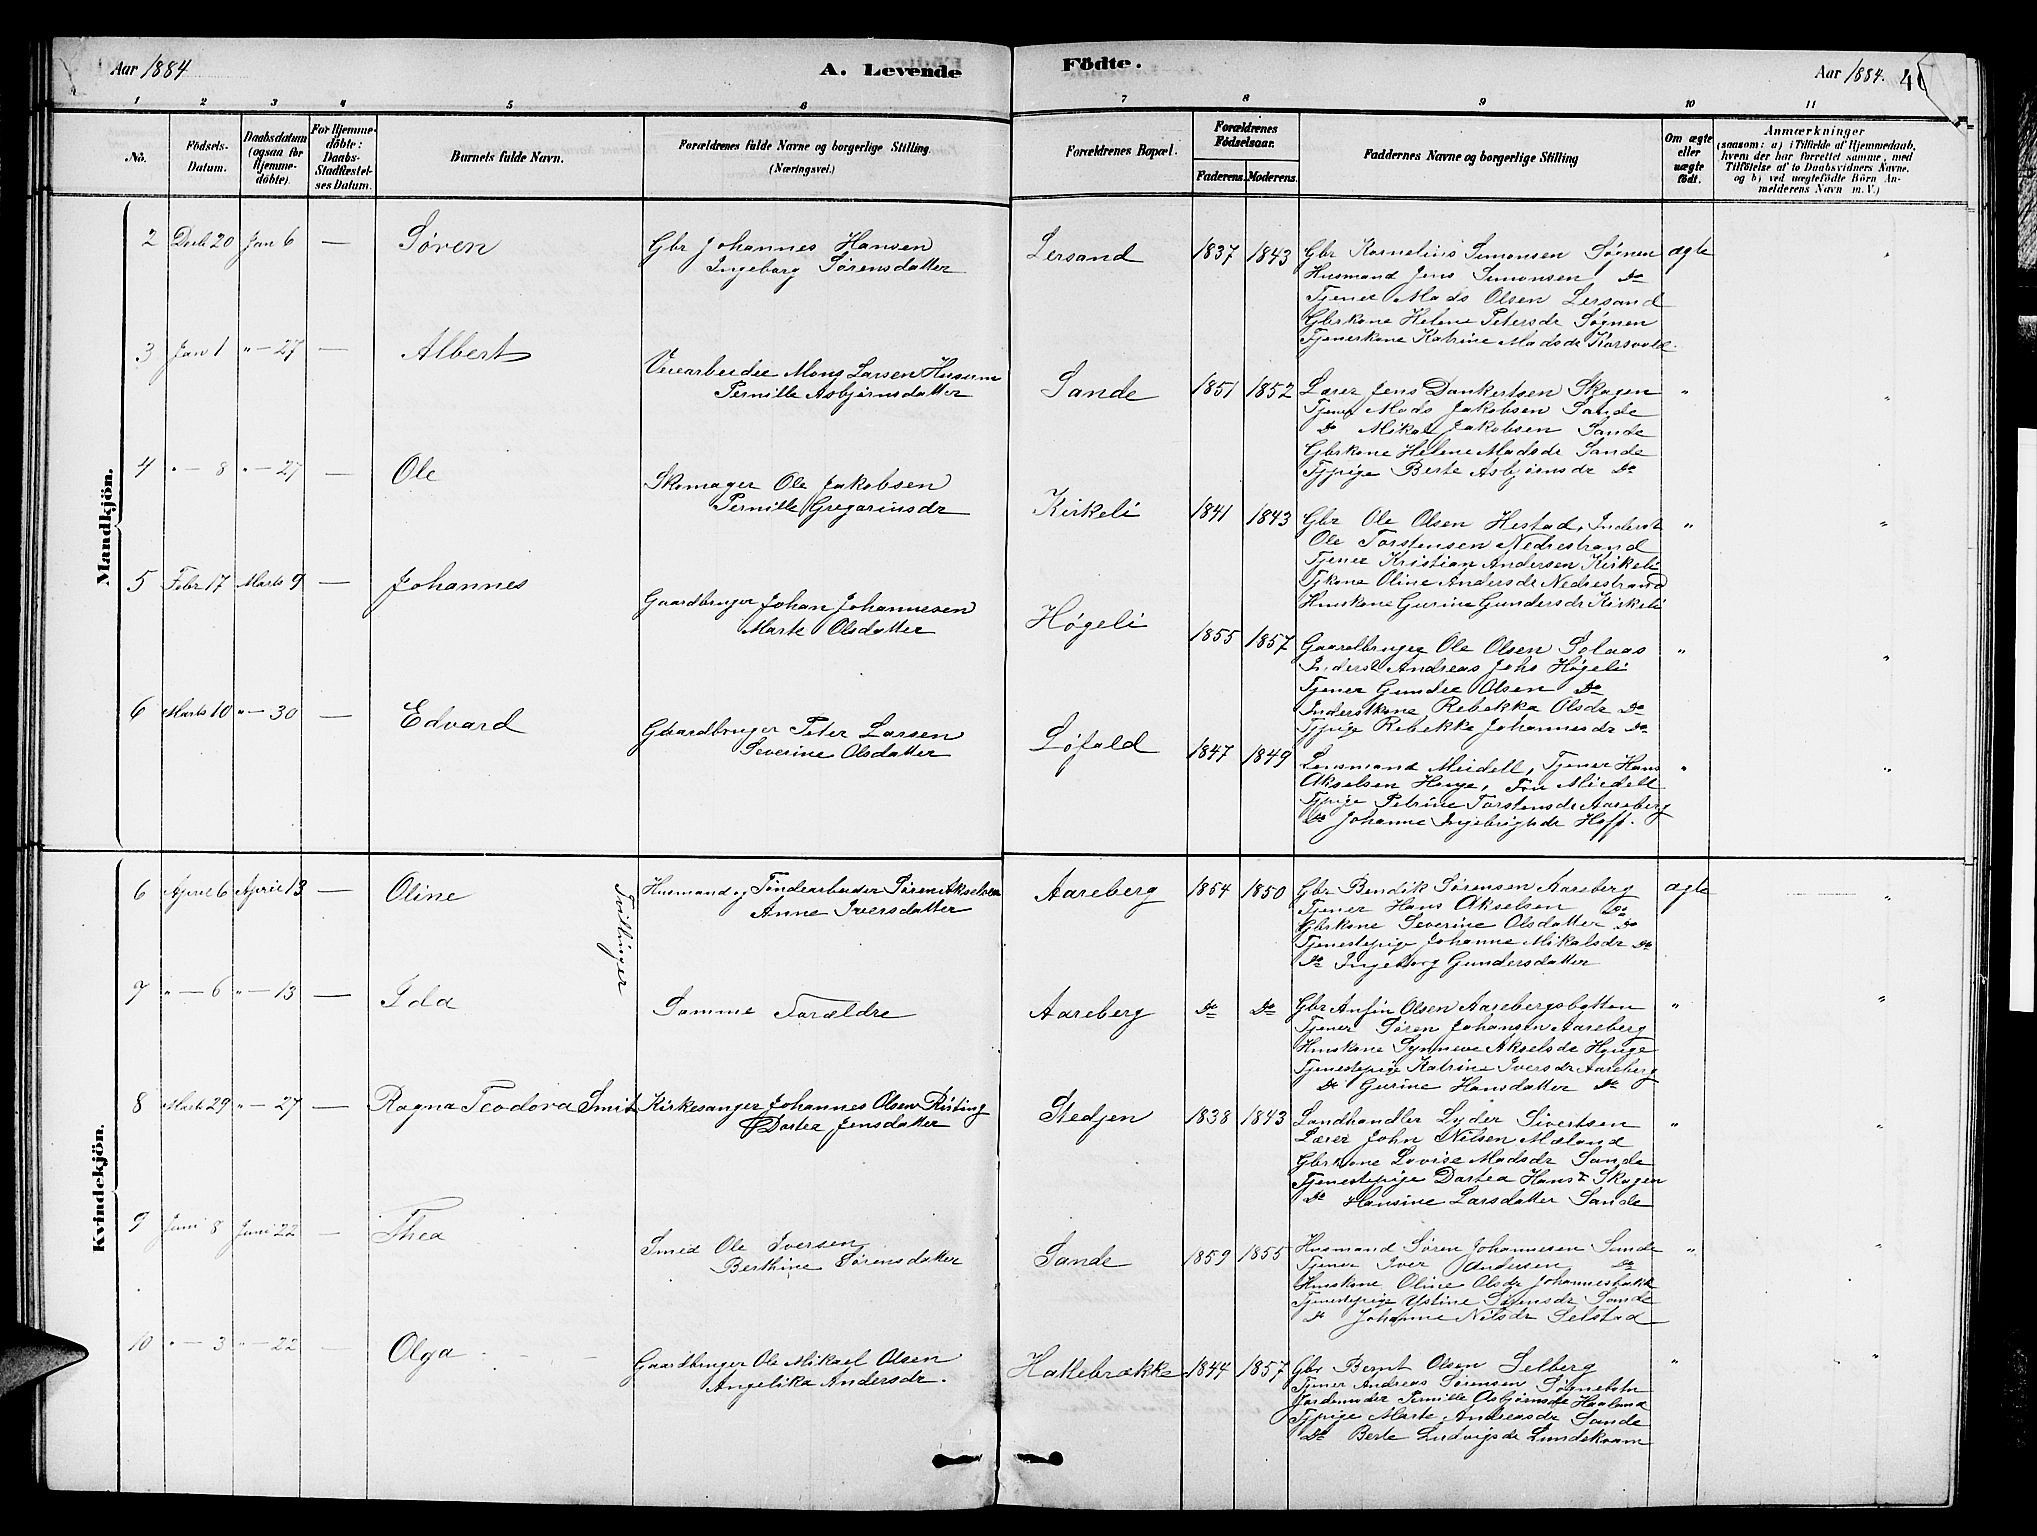 Aar 1884
A. Levende
Födte.
Aar 1884.
1 2 3 4 5 6 7 8 9 10 11
No.
Födsels-Datum.
Daabsdatum (ogsaa for Hjemmedöbte).
For Hjemmedöbte: Daabs-Stadfæstelses Datum.
Barnets fulde Navn.
Forældrenes fulde Navne og borgerlige Stilling. (Næringsvei.)
Forældrenes Bopæl.
Forældrenes Födselsaar.
Faderens. Moderens.
Faddernes Navne og borgerlige Stilling
Om ægte eller uægte födt.
Anmærkninger
(saasom: a) i Tilfælde af Hjemmedaab, hvem der har forrettet samme, med Tilföielse af to Daabsvidners Navne. og b) ved uægtefödte Börn Anmelderens Navn m. V.)
Mandkjön.
2 Decb 20 Jan 6 — Søren
Gbr Johannes Hansen
Ingeborg Sørensdatter
Lersand 1837 1843
Gbr Kornelius Simonsen Søgnen ægte
Husmand Jens Simonsen Do
Tjener Mads Olsen Lersand
Gbrkone Helene Petersdr Søgnen
Tjenerkone Katrine Madsdr Korsvold
3 Jan 1 " — 27 — Albert
Veiarbeider Mons Larsen Husum
Pernille Asbjørnsdatter
Sande 1851 1852
Lærer Jens Dankertsen Skagen "
Tjener Mads Jakobsen Sande
Do Mikal Jakobsen Sande
Gbrkone Helene Madsdr Sande
Tjpige Berte Asbjørnsdr Do
4 " — 8 " — 27 — Ole
Skomager Ole Jakobsen
Pernille Gregoriusdr
Kirkeli 1841 1843
Gbr Ole Olsen Hestad, Inderst "
Ole Torstensen Nedrestrand
Tjener Kristian Andersen Kirkeli
Tjkone Oline Andersdr Nedrestrand
Huskone Gurine Gundersdr Kirkeli
5 Febr 17 Marts 9 — Johannes
Gaardbruger Johan Johannesen
Marte Olsdatter
Høgeli 1855 1857
Gaardbruger Ole Olsen Solaas "
Inderst Andreas Johs Høgeli
Tjener Gunder Olsen Do
Inderstkone Rebekka Olsdr Do
Tjpige Rebekke Johannesdr Do
6 Marts 10 " — 30 — Edvard
Gaardbruger Peter Larsen
Severine Olsdatter
Løfald 1847 1849
Lensmand Meidell, Tjener Hans "
Akselsen Hauge, Fru Meidell
Tjpige Petrine Torstensdr Aareberg
Do Johanne Ingebrigtsdr Hoff.
Kvindekjön.
6 April 6 April 13 — Oline
Tvillinger
Husmand og Tøndearbeider Søren Akselsen
Anne Iversdatter
Aareberg 1854 1850
Gbr Bendik Sørensen Aareberg ægte
Tjener Hans Akselsen Do
Gbrkone Severine Olsdatter Do
Tjenestepige Johanne Mikalsdr Do
Do Ingeborg Gundersdatter
7 " — 6 " — 13 — Ida
Samme Forældre
Aareberg Do Do
Gbr Anfin Olsen Aarebergsbotten "
Tjener Søren Johansen Aareberg
Huskone Synneve Akselsdr Hauge
Tjenestepige Katrine Iversdr Aareberg
Do Gurine Hansdatter Do
8 Marts 29 " — 27 — Ragna Teodora Smit
Kirkesanger Johannes Olsen Risting
Dortea Jensdatter
Stedjen 1838 1843
Landhandler Lyder Sivertsen "
Lærer John Nilsen Mæland
Gbrkone Lovise Madsdr Sande
Tjenestepige Dortea Hansdr Skagen
Do Hansine Larsdatter Sande
9 Juni 8 Juni 22 — Thea
Smed Ole Iversen
Berthine Sørensdatter
Sande 1859 1855
Husmand Søren Johannesen Sande "
Tjener Iver Andersen Do
Huskone Oline Olsdr Johannesbakk
Tjenestepige Ystine Sørensdr Sande
Do Johanne Nilsdr Selstad
10 " — 3 " — 22 — Olga
Gaardbruger Ole Mikael Olsen
Angelika Andersdr.
Hallebrække 1844 1857
Gbr Bernt Olsen Selberg "
Tjener Andreas Sørensen Søgnebotn
Jordemoder Pernille Asbjørnsdr Haaland
Tjpige Marte Andreasdr Sande
Do Berte Ludvigsdr Lundekvam